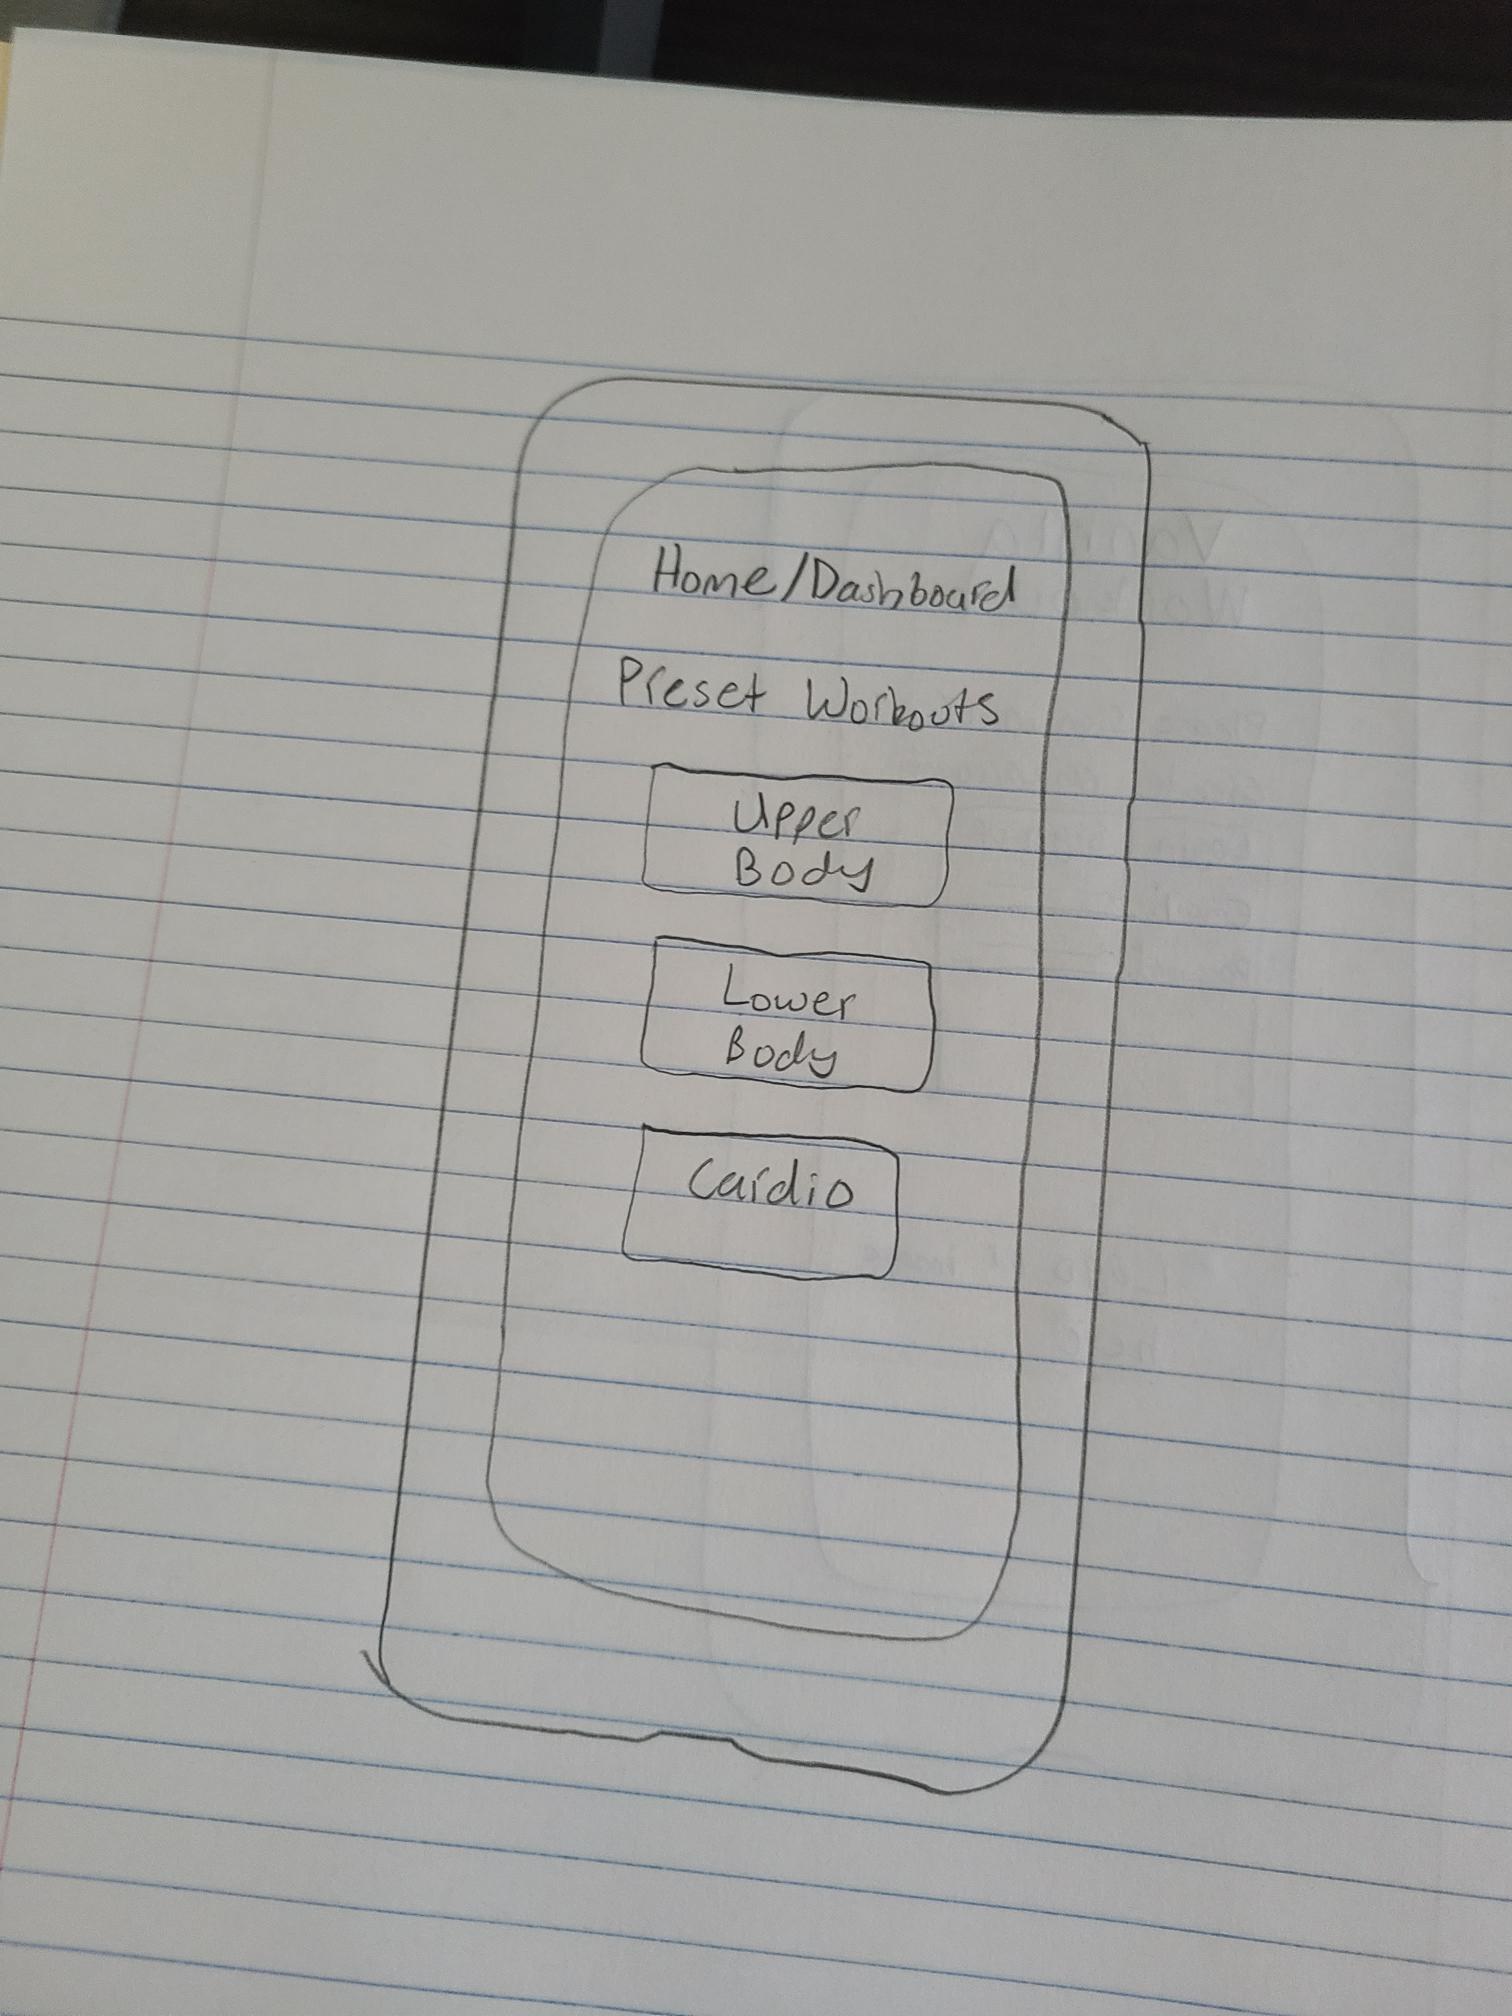 Home/Dashboard
Preset Workouts
Upper
Body
Lower
Body
Cardio